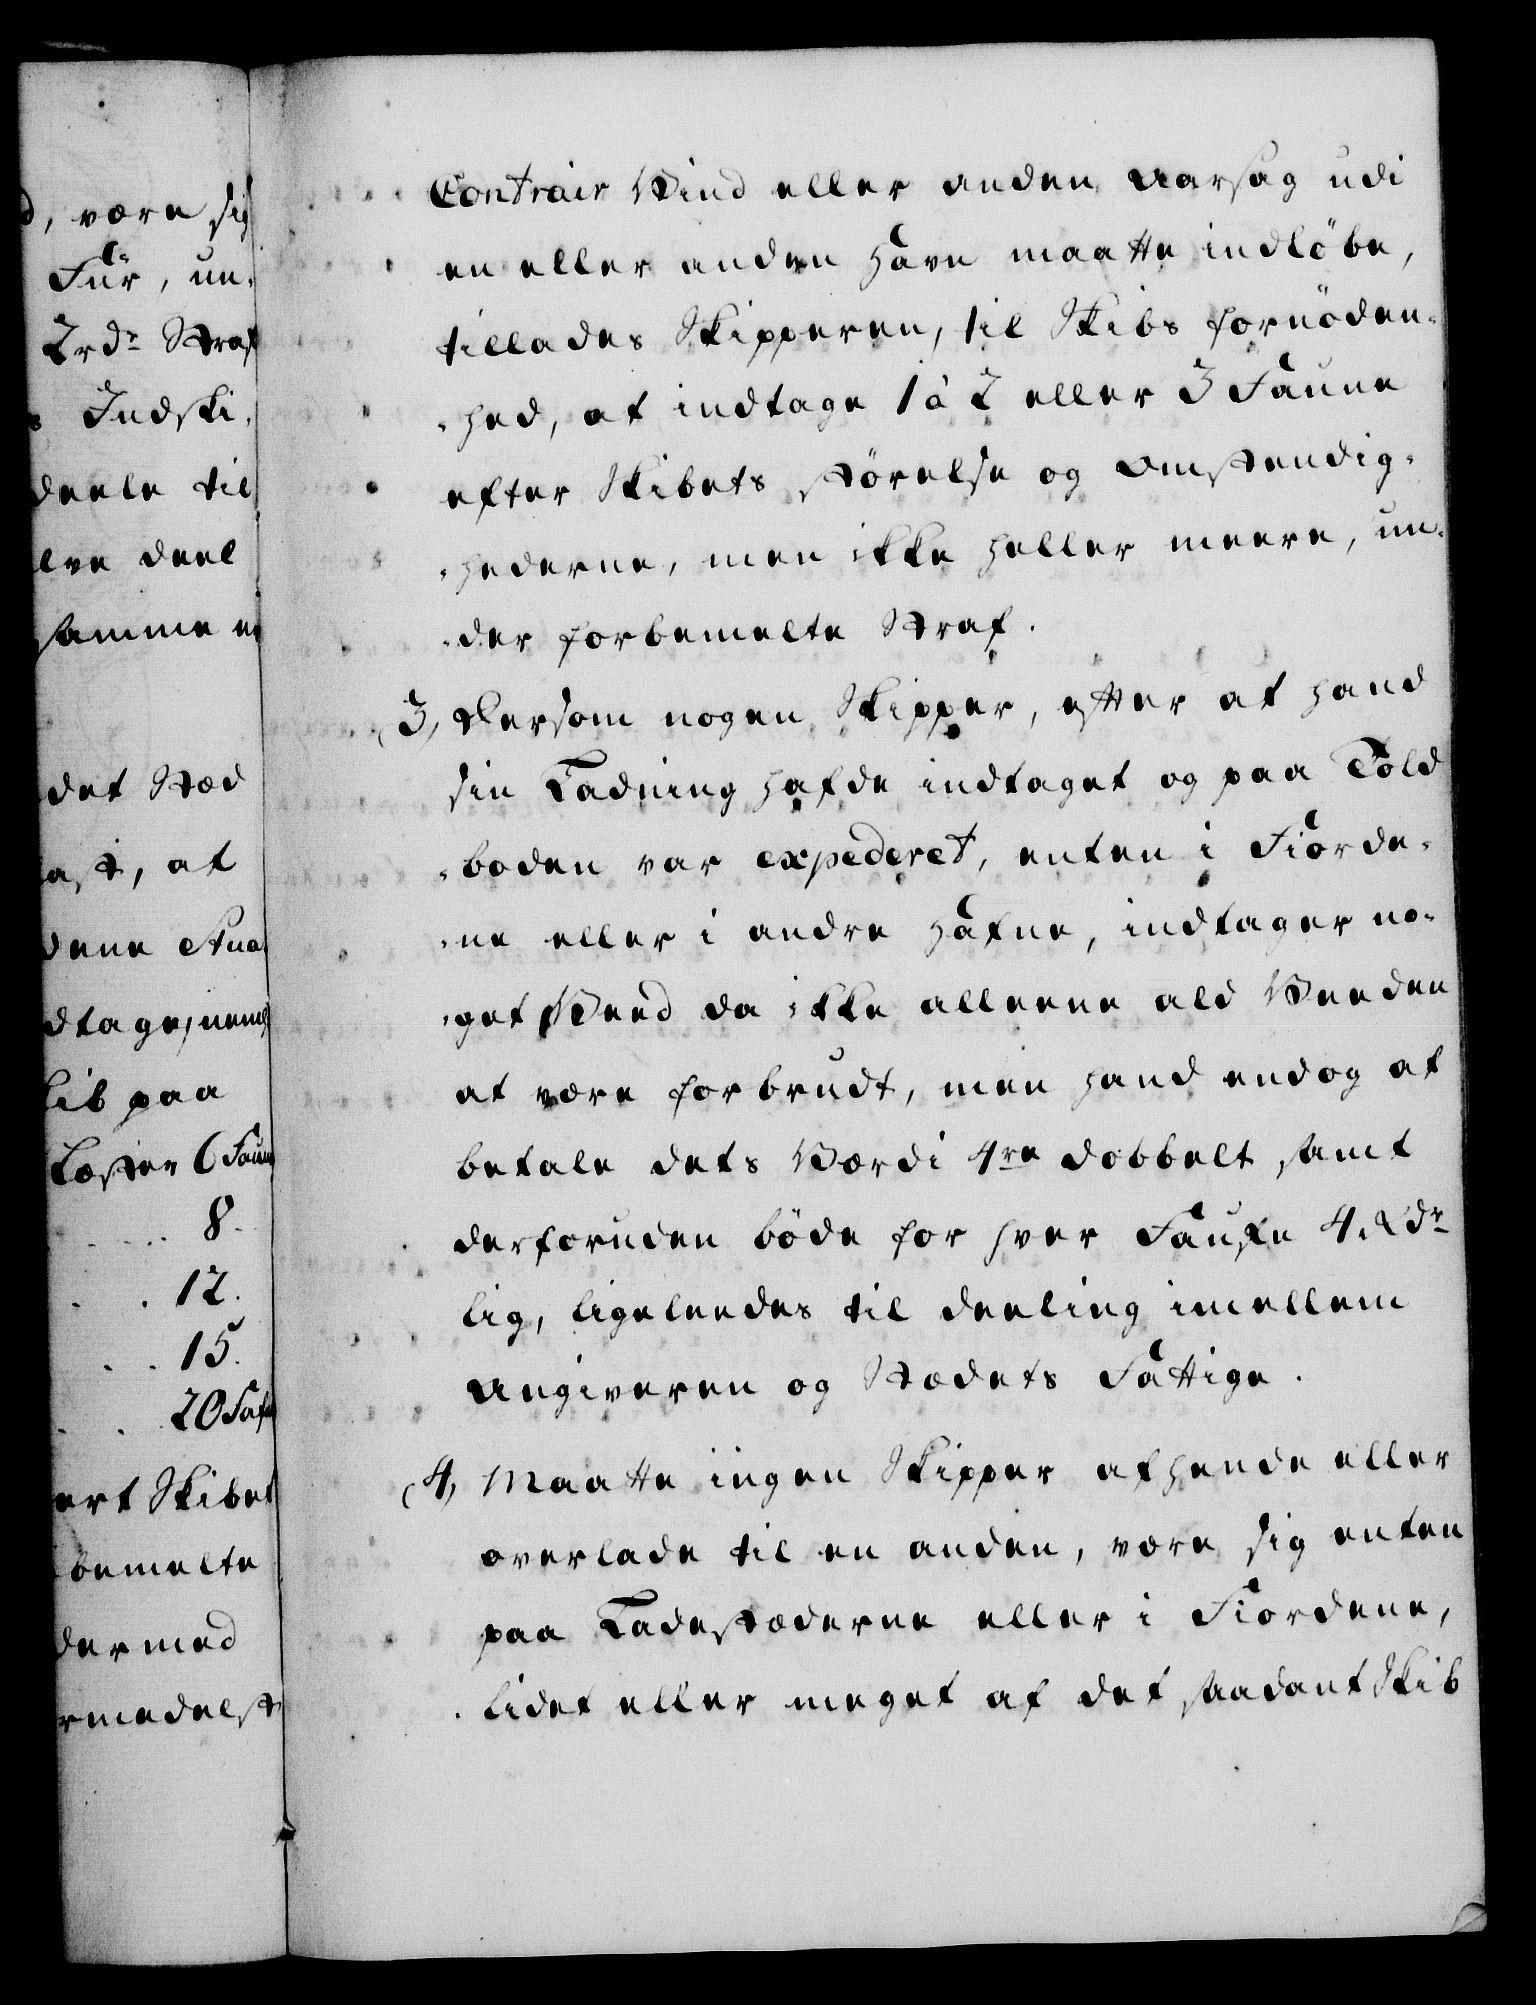 d, være sig
Før, un¬
2 rdr Straf
s Indski¬
deele til
lve deel
samme e
det Stæd
ast, at
dene
dtage, neml
kib paa
Læster 6 Faun
8.
12.
15.
20 Faf
ert Skibet
bemelte
dermed
rmedelst
Contrair Wind eller anden Aarsag udi
en eller anden Havn maatte indløbe,
tillades Skipperen, til Skibs fornøden¬
¬hed, at indtage 1 à 2 eller 3 Faune
efter Skibets størelse og Omstendig¬
¬hederne, men ikke heller meere, un¬
¬der forbemelte Straf.
(3, Dersom nogen Skipper, efter at hand
sin Ladning hafde indtaget og paa Told
¬boden var expederet, enten i Fiorde¬
¬ne eller i andre Hafne, indtager no¬
¬get Weed da ikke alleene ald Weeden
at være forbrudt, men hand endog at
betale dets Værdi 4re dobbelt samt
desforuden bøde for hver Faufn 4. Rdr
lig, ligeleedes til deeling imellem
Angiveren og Stædets Fattige.
(4, Maatte ingen Skipper afhende eller
overlade til en anden, være sig enten
paa Ladestæderne eller i Fiordene,
lidet eller meget af det saadant Skib